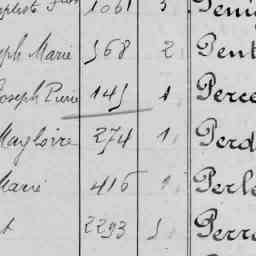 1061 3
eph Marie 568 2 Pent
Joseph Pierre 145 1 Perce
Magloire 274 1 Perd
Marie 416 1 Perle
2293 5 Perr